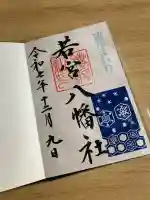 若宮八幡社
令和七年十二月九日